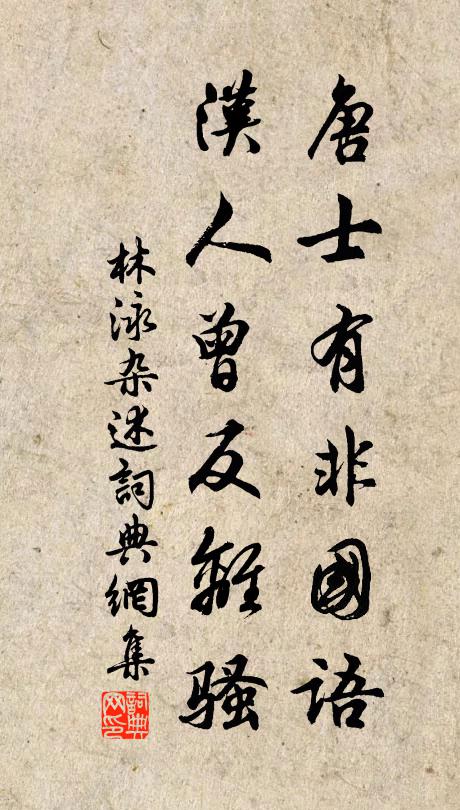 唐士有非國語
漢人曾反離騷
林泳杂述詞典網集
詞典网印